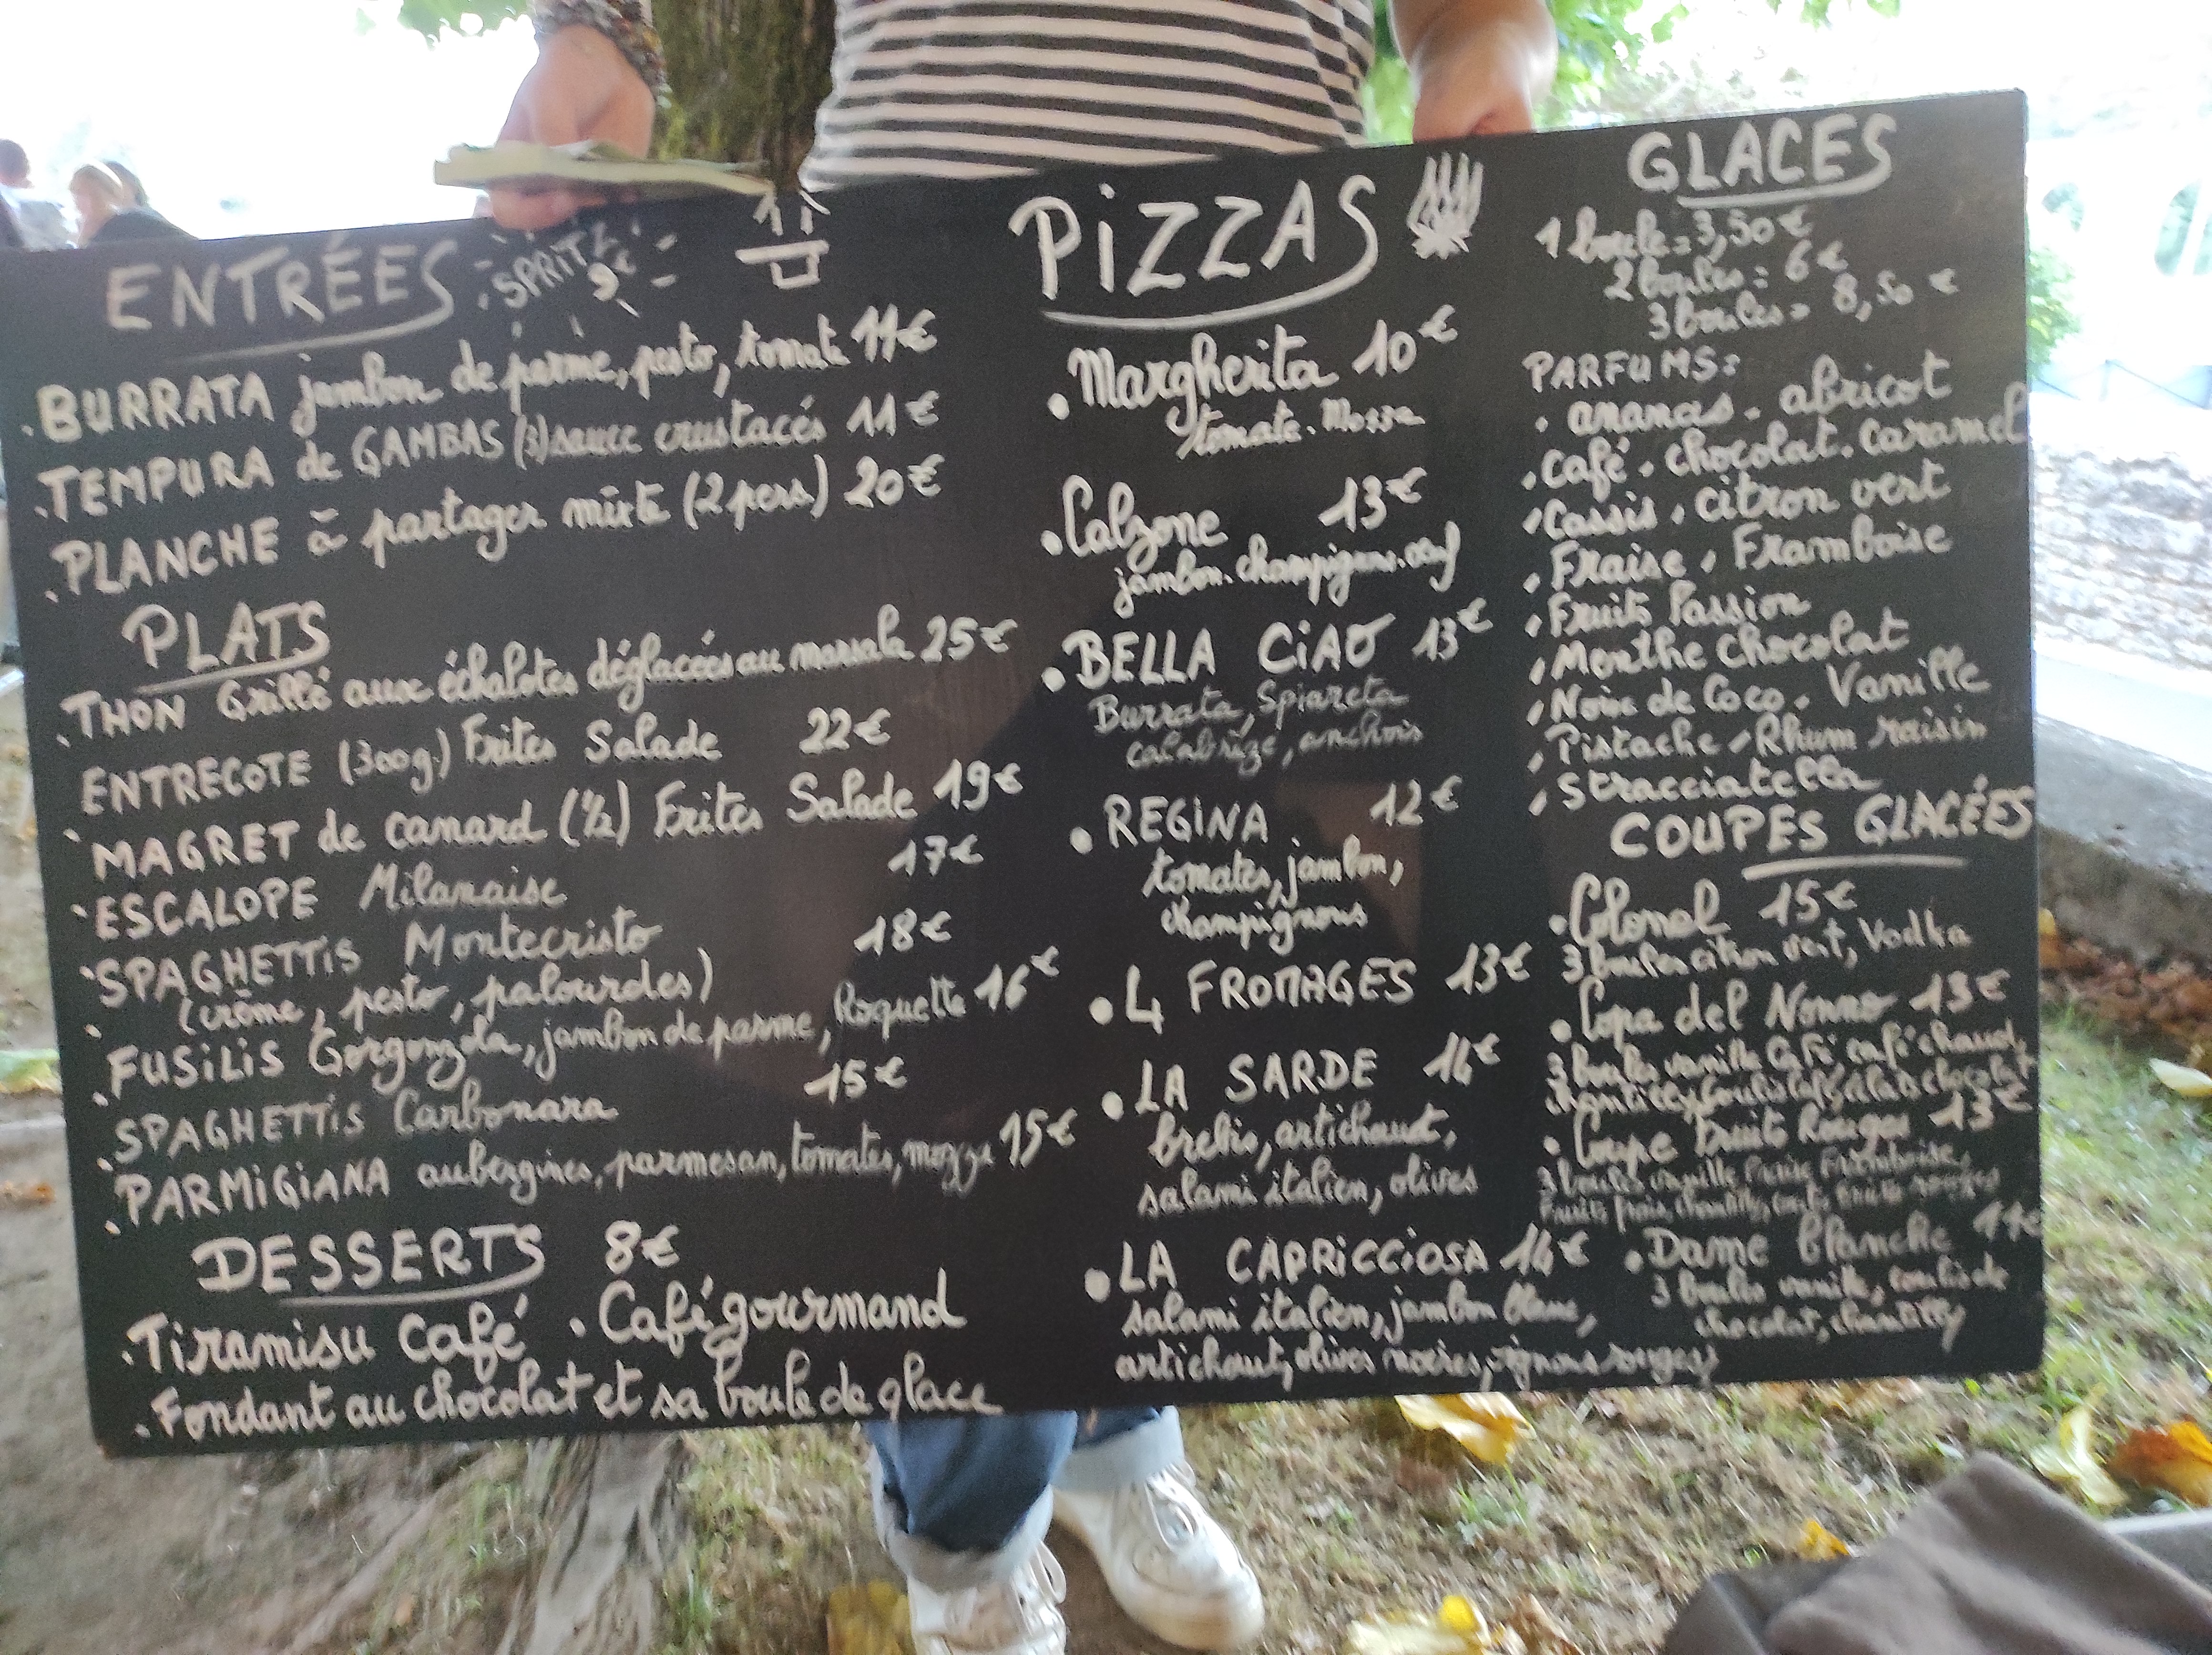 ENTRÉES
SPRITZ
9€
. BURRATA jambon de parme, pesto, tomate 11€
. TEMPURA de GAMBAS (3) sauce crustacés 11€
. PLANCHE à partager mixte (2 pers.) 20€
PLATS
. THON Grillé aux échalotes déglacées au marsala 25€
. ENTRECOTE (300g.) Frites Salade 22€
. MAGRET de canard (1/2) Frites Salade 19€
. ESCALOPE Milanaise 17€
. SPAGHETTIS Montecristo 18€
(crème, pesto, palourdes)
. FUSILIS Gorgonzola, jambon de parme, Roquette 16€
. SPAGHETTIS Carbonara 15€
. PARMIGIANA aubergines, parmesan, tomates, mozza 15€
DESSERTS 8€
. Tiramisu Café . Café gourmand
. Fondant au chocolat et sa boule de glace
PIZZAS
. Margherita 10€
tomate. Mozza
. Calzone 13€
jambon. champignons. œuf
. BELLA CIAO 13€
Burrata, Spiareta
calabrize, anchois
. REGINA 12€
tomates, jambon,
champignons
. 4 FROMAGES 13€
. LA SARDE 14€
brebis, artichaut,
salami italien, olives
. LA CAPRICCIOSA 14€
salami italien, jambon blanc,
artichaut, olives noires, oignons rouges
GLACES
1 boule = 3,50€
2 boules = 6€
3 boules = 8,50€
PARFUMS:
. ananas . abricot
. Café . chocolat . caramel
. Cassis . citron vert
. Fraise . Framboise
. Fruits Passion
. Menthe chocolat
. Noix de Coco . Vanille
. Pistache . Rhum raisin
. Stracciatella
COUPES GLACÉES
. Colonel 15€
3 boules citron vert, Vodka
. Copa del Nonno 13€
3 boules vanille café café chaud,
chantilly, coulis chocolat
. Coupe Fruits Rouges 13€
3 boules vanille Fraise Framboise,
Fruits frais, chantilly, coulis fruits rouges
. Dame blanche 11€
3 boules vanille, coulis de
chocolat, chantilly